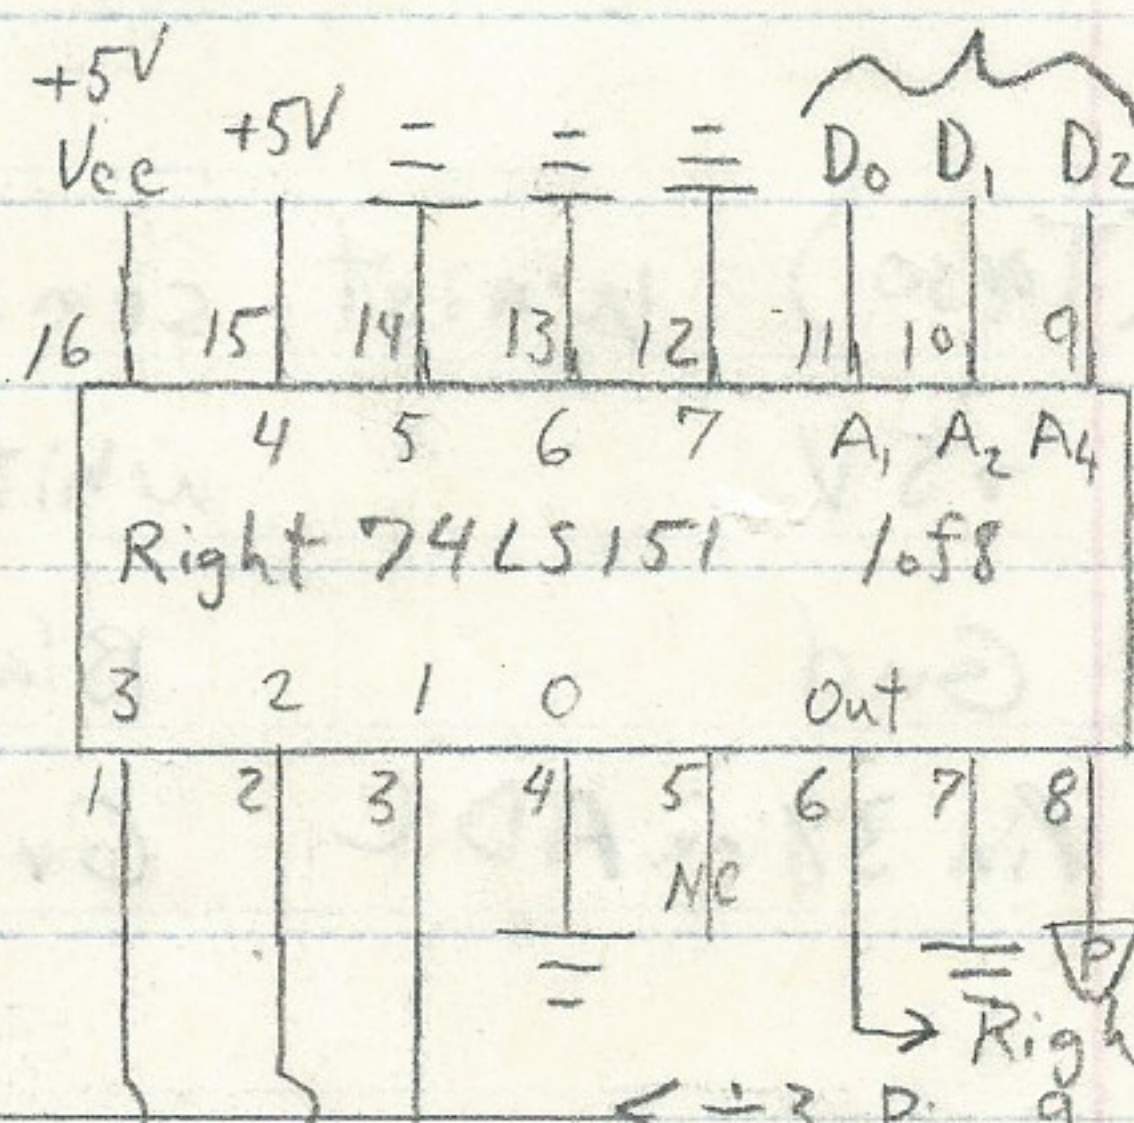 +5V
Vcc +5V D0 D1 D2
16 15 14 13 12 11 10 9
4 5 6 7 A1 A2 A4
Right 74LS151 1 of 8
3 2 1 0 Out
1 2 3 4 5 6 7 8
NC
P
Righ